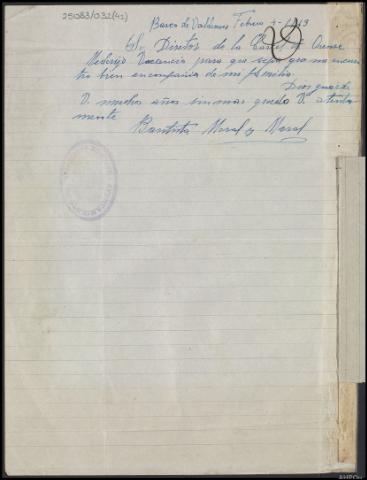 25083/032(42)
Barco de Valdeorras Febrero
Sr Director de la Carcel de Orense
Me dirijo Vacancia para que sepa que me encuen
tro bien en compañia de mi familia.
Dios guarde
V. muchos años sin mas quedo V. atenta
mente
Bautista Moral y Moral